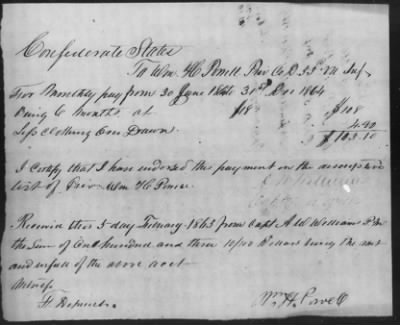 Confederate States
To Wm. H. Powell Priv Co D 55 Va Inf
For Monthly pay from 30 June 1864 to 31st Dec 1864
being 6 Months at $18 $108
Less Clothing Over Drawn 4.90
$103.10
I certify that I have endorsed this payment on the
list of Priv. Wm H Powell
Received this 5 day February 1865 from Capt A W Williams
the Sum of One hundred and three 10/100 Dollars being the amt
and in full of the above acct
Witness
Wm. H. Powell